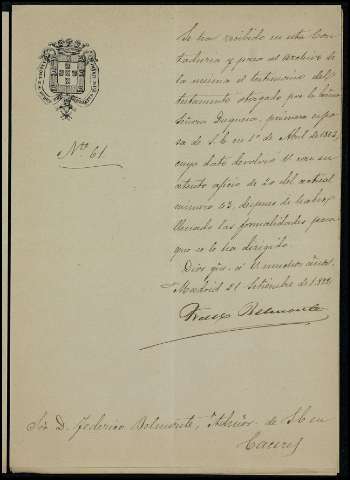 Nº 61.
Se ha recibido en esta Con-
taduria y pasa al Archivo de
la misma el testimonio del
testamento otorgado por la
Señora Duquesa, primera espo-
sa de S. E. en 1º de Abril de
cuyo dato devolvio V. con su
atento oficio de 20 del actual
numero 43, despues de haber
llenado las formalidades para
que se le ha dirigido.
Dios gue. á V. muchos años.
Madrid 21 Setiembre de
Belmonte
Sor. D. Federico Belmonte, Admor. de S. E. en
Caceres